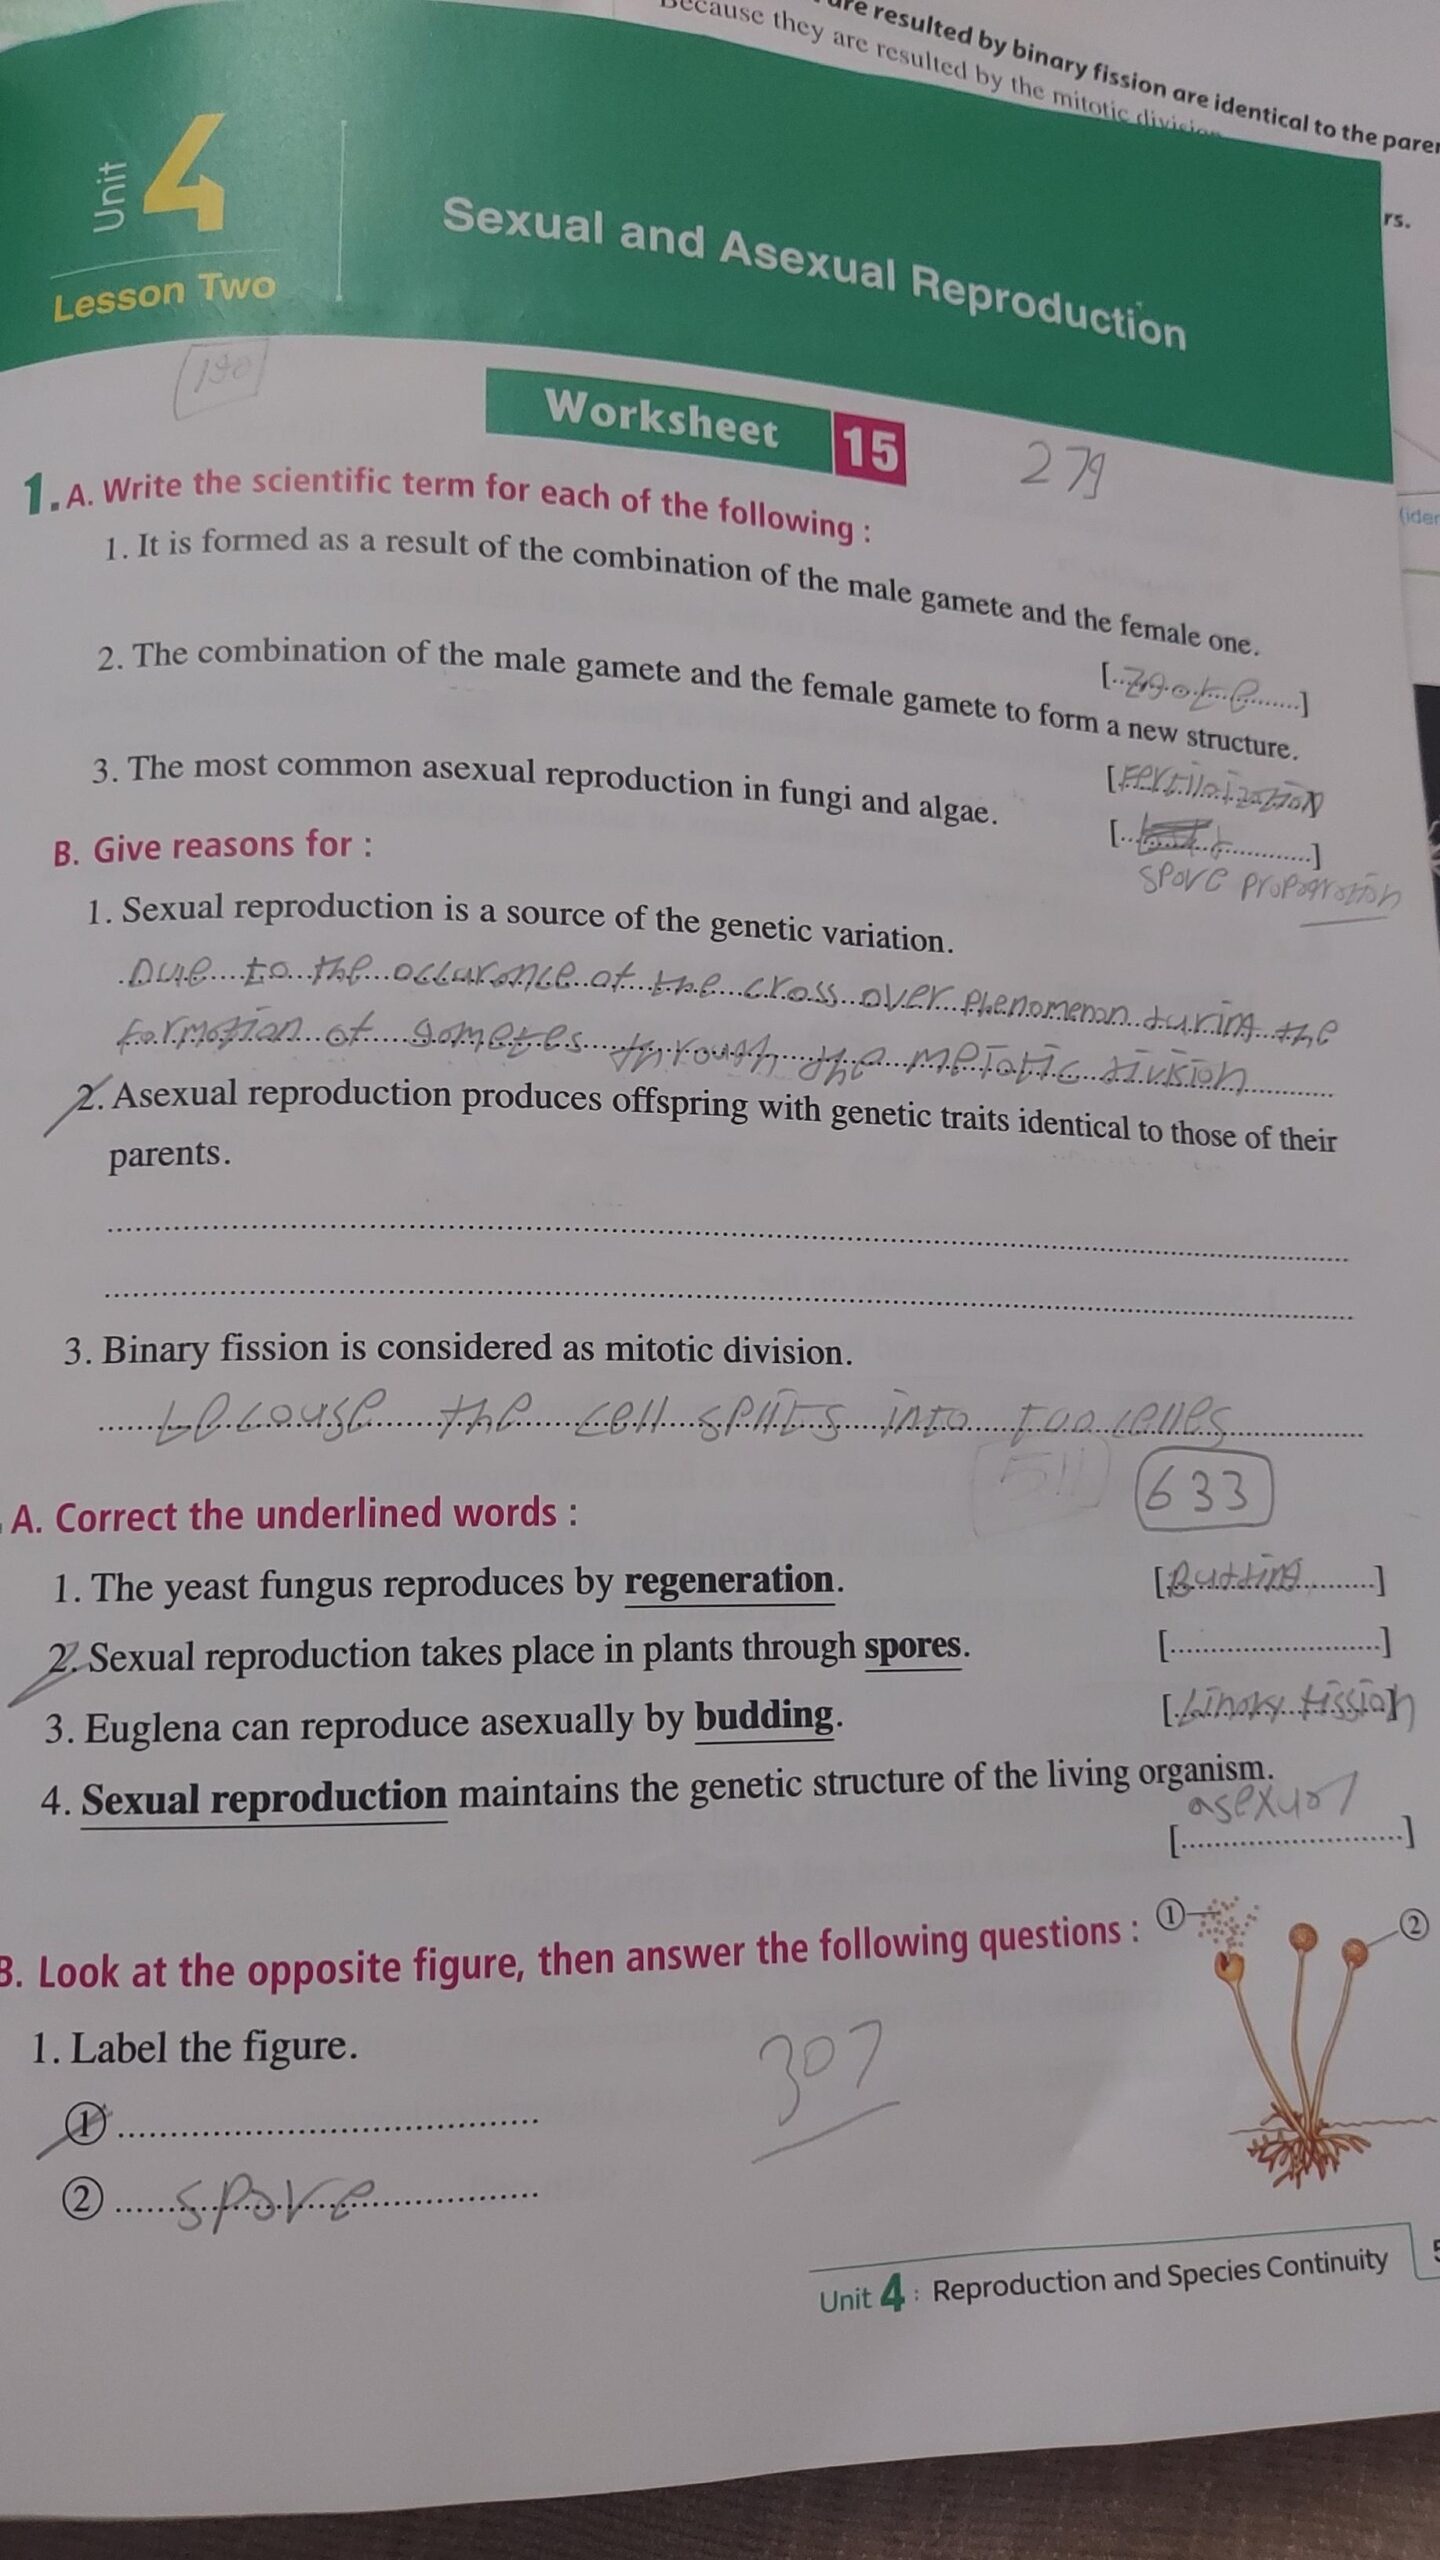 are resulted by binary fission are identical to the paren
Because they are resulted by the mitotic division
rs.
(iden
Unit 4
Lesson Two
Sexual and Asexual Reproduction
190
Worksheet 15
279
1. A. Write the scientific term for each of the following :
1. It is formed as a result of the combination of the male gamete and the female one.
[..zgote........]
2. The combination of the male gamete and the female gamete to form a new structure.
[Fertiloization]
3. The most common asexual reproduction in fungi and algae.
[....................]
spore propogration
B. Give reasons for :
1. Sexual reproduction is a source of the genetic variation.
Due to the occurance of the cross over phenomenon during the
formotion of gometes through the meiotic division
2. Asexual reproduction produces offspring with genetic traits identical to those of their
parents.
3. Binary fission is considered as mitotic division.
becouse the cell splits into too celles
511
633
A. Correct the underlined words :
1. The yeast fungus reproduces by regeneration. [Budding..........]
2. Sexual reproduction takes place in plants through spores. [..........................]
3. Euglena can reproduce asexually by budding. [binory fission]
4. Sexual reproduction maintains the genetic structure of the living organism.
asexual
[...........................]
B. Look at the opposite figure, then answer the following questions :
① ②
1. Label the figure.
307
①
② spore
Unit 4 : Reproduction and Species Continuity 5